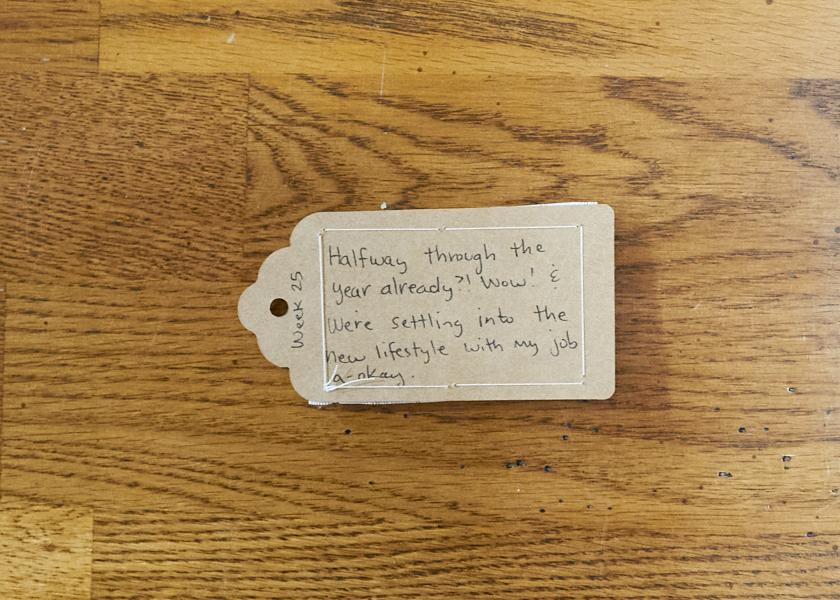 Week 25
Halfway through the
year already?! Wow! &
We're settling into the
new lifestyle with my job
a-okay.